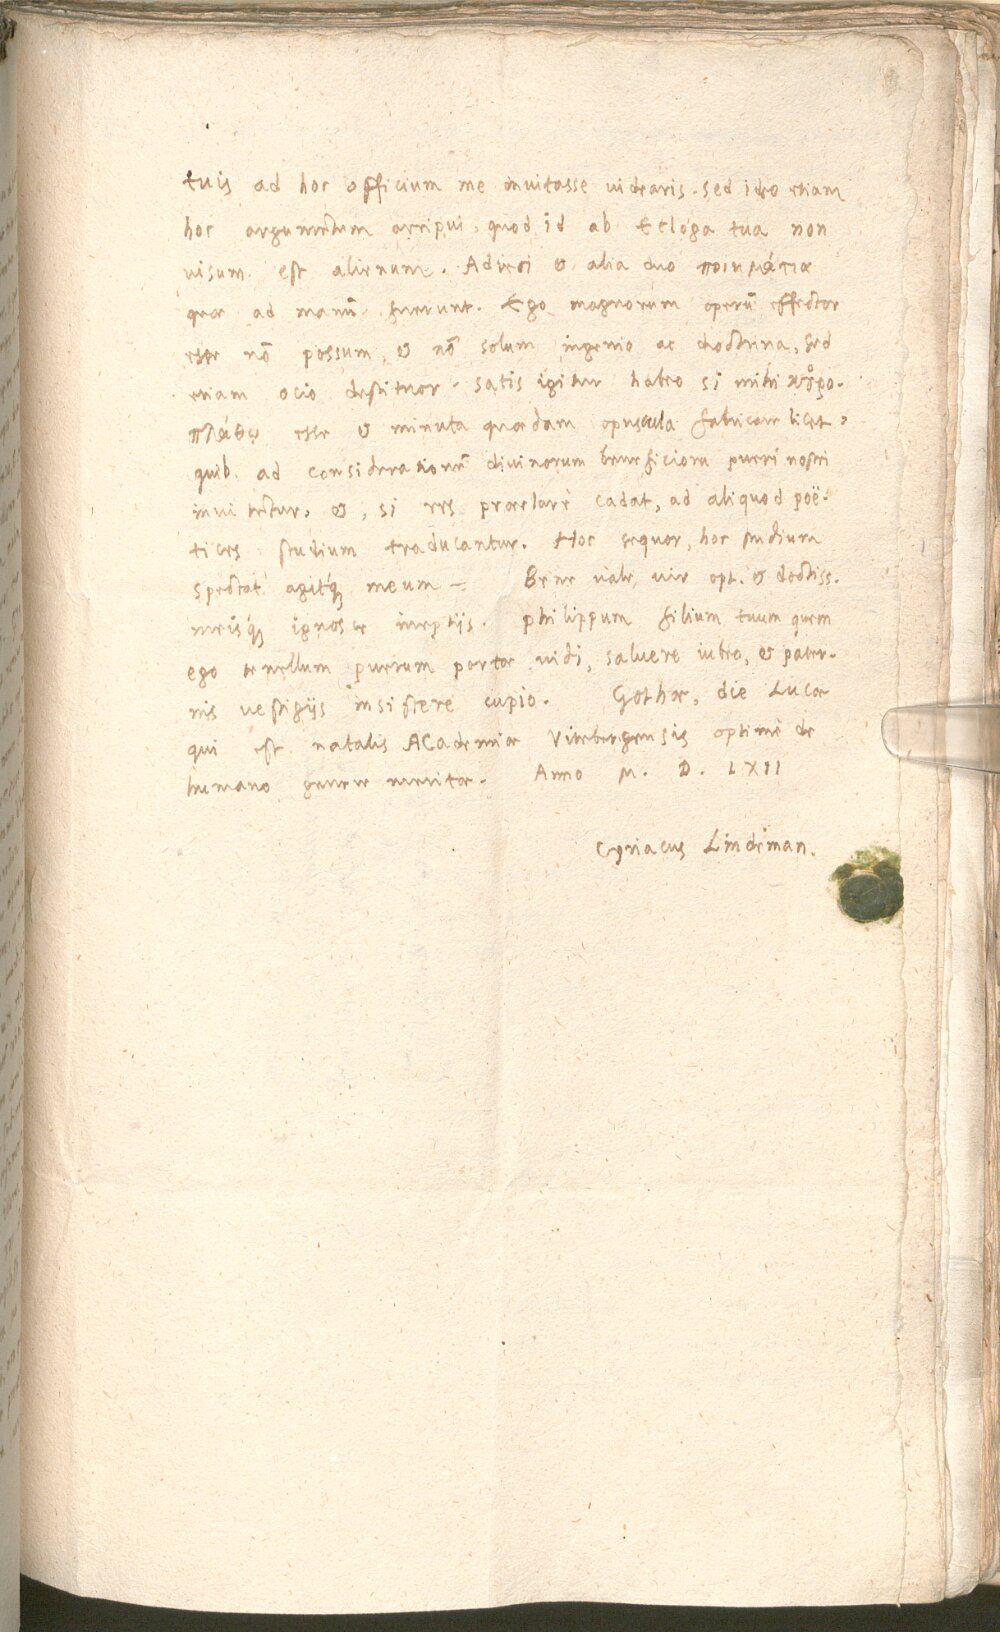 tuis ad hoc officium me invitasse videaris. sed ideo etiam
hoc argumentum arripui, quod id ab Ecloga tua non
visum est alienum. Adieci & alia duo ποιημάτια
quae ad manū fuerunt. Ego magnorum operū effector
esse nō possum, & nō solum ingenio ac doctrina, sed
etiam ocio destituor. satis igitur habeo si mihi κορο-
πλάθῳ esse & minuta quaedam opuscula fabricare licet,
quib. ad considerationē divinorum beneficioru pueri nostri
invitentur, &, si res praeclarè cadat, ad aliquod poë-
tices studium traducantur. Hoc sequor, hoc studium
spectat agitq́ meum – Bene vale, vir opt. & doctiss.
meisq́ ignosce ineptijs. Philippum filium tuum quem
ego tenellum puerum portae vidi, salvere iubeo, & pater-
nis vestigijs insistere cupio. Gothae, die Lucae
qui est natalis Academiae Vitebergensis optimè de
humano genere meritae. Anno M. D. LXII
Cyriacus Lindeman.